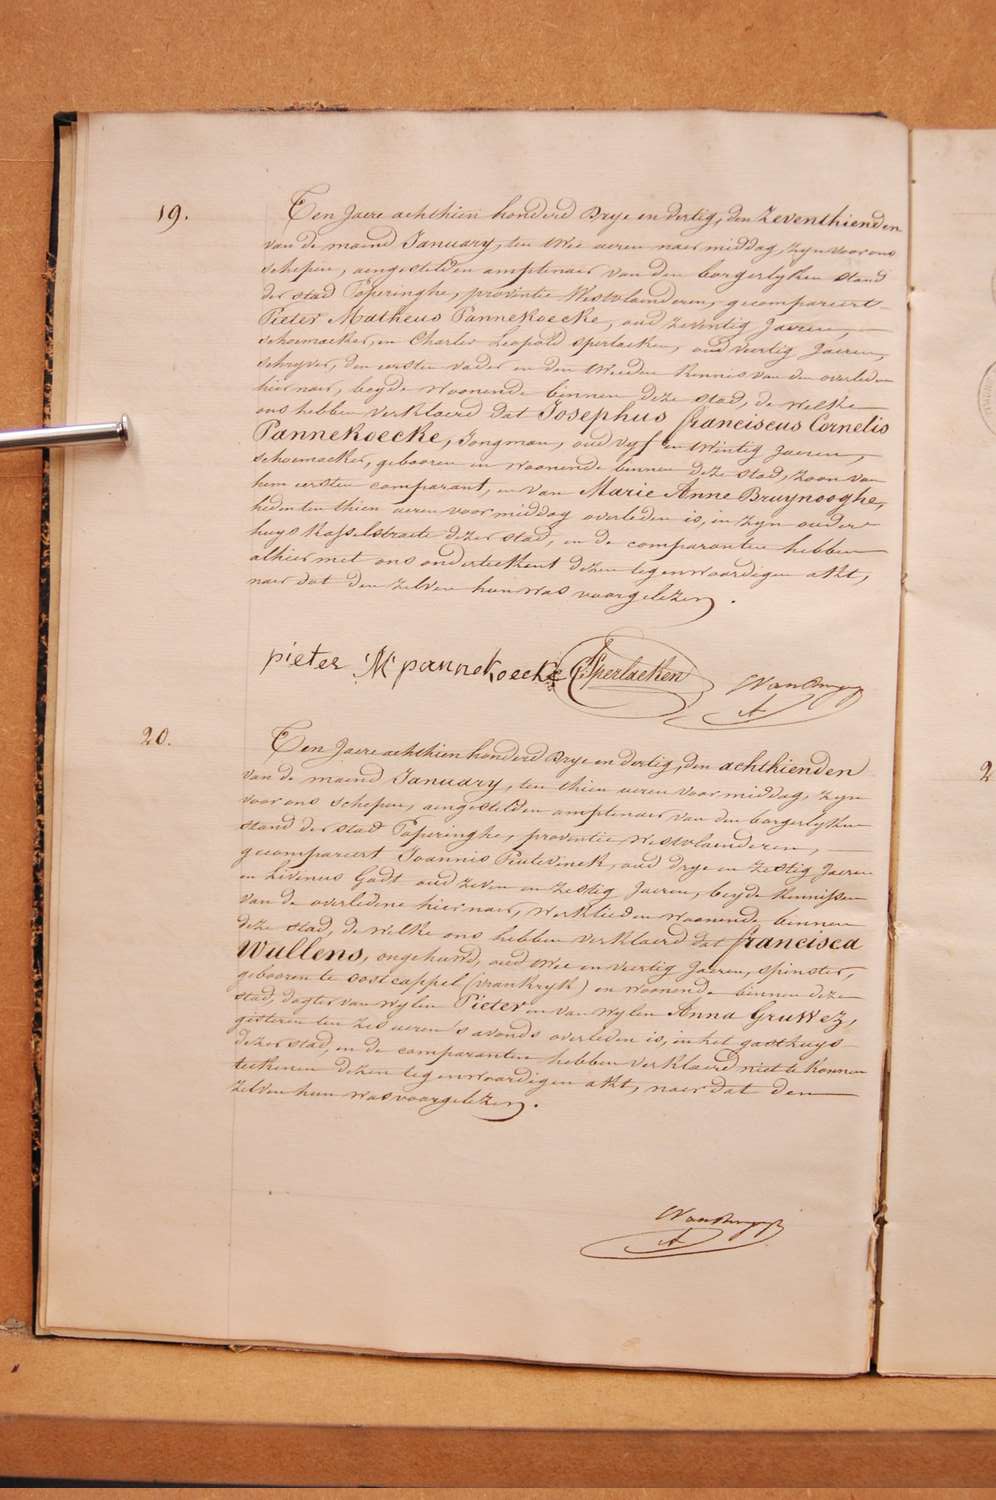 19.
Ten Jaere achthien honderd Drye en dertig, den Zeventhienden
van de maend January, ten twee ueren naer middag, zyn voor ons
schepen, aengestelden amptenaer van den borgerlyken stand
der stad Poperinghe, provintie Westvlaenderen, gecompareert
Pieter Matheus Pannekoecke, oud zeventig Jaeren,
schoemaeker, en Charles Leopold Sperlaeken, oud veertig Jaeren,
schryver, den eersten vader en den tweeden kennis van den overleden
hier naer, beyde woonende binnen deze stad, de welke
ons hebben verklaerd dat Josephus franciscus Cornelis
Pannekoecke, Jongman, oud vyf en twintig Jaeren,
schoemaeker, gebooren en woonende binnen deze stad, zoon van
hem eersten comparant, en van Marie Anne Bruynooghe,
heden ten thien ueren voor middag overleden is, in zyn ouder
huys Kasselstraete dezer stad, en de comparanten hebben
alhier met ons onderteekent dezen tegenwoordigen akt,
naer dat den zelven hun was voorgelezen.
pieter M pannekoecke C: Sperlaeken
20.
Ten Jaere achthien honderd Drye en dertig, den achthienden
van de maend January, ten thien ueren voor middag, zyn
voor ons schepen, aengestelden amptenaer van den borgerlyken
stand der stad Poperinghe, provintie Westvlaenderen,
gecompareert Joannis Rulevenck, oud drye en zestig Jaeren
en Livinus Godt oud zeven en zestig Jaeren, beyde kennissen
van de overledene hier naer, werklieden woonende binnen
deze stad, de welke ons hebben verklaerd dat francisca
Wullens, ongehuwd, oud twee en veertig Jaeren, spinster,
gebooren te oost cappel (vrankryk) en woonende binnen deze
stad, dogter van wylen Pieter en van wylen Anna Gruwez,
gisteren ten zes ueren 's avonds overleden is, in het gasthuys
dezer stad, en de comparanten hebben verklaerd niet te konnen
teekenen dezen tegenwoordigen akt, naer dat den
zelven hun was voorgelezen.
2